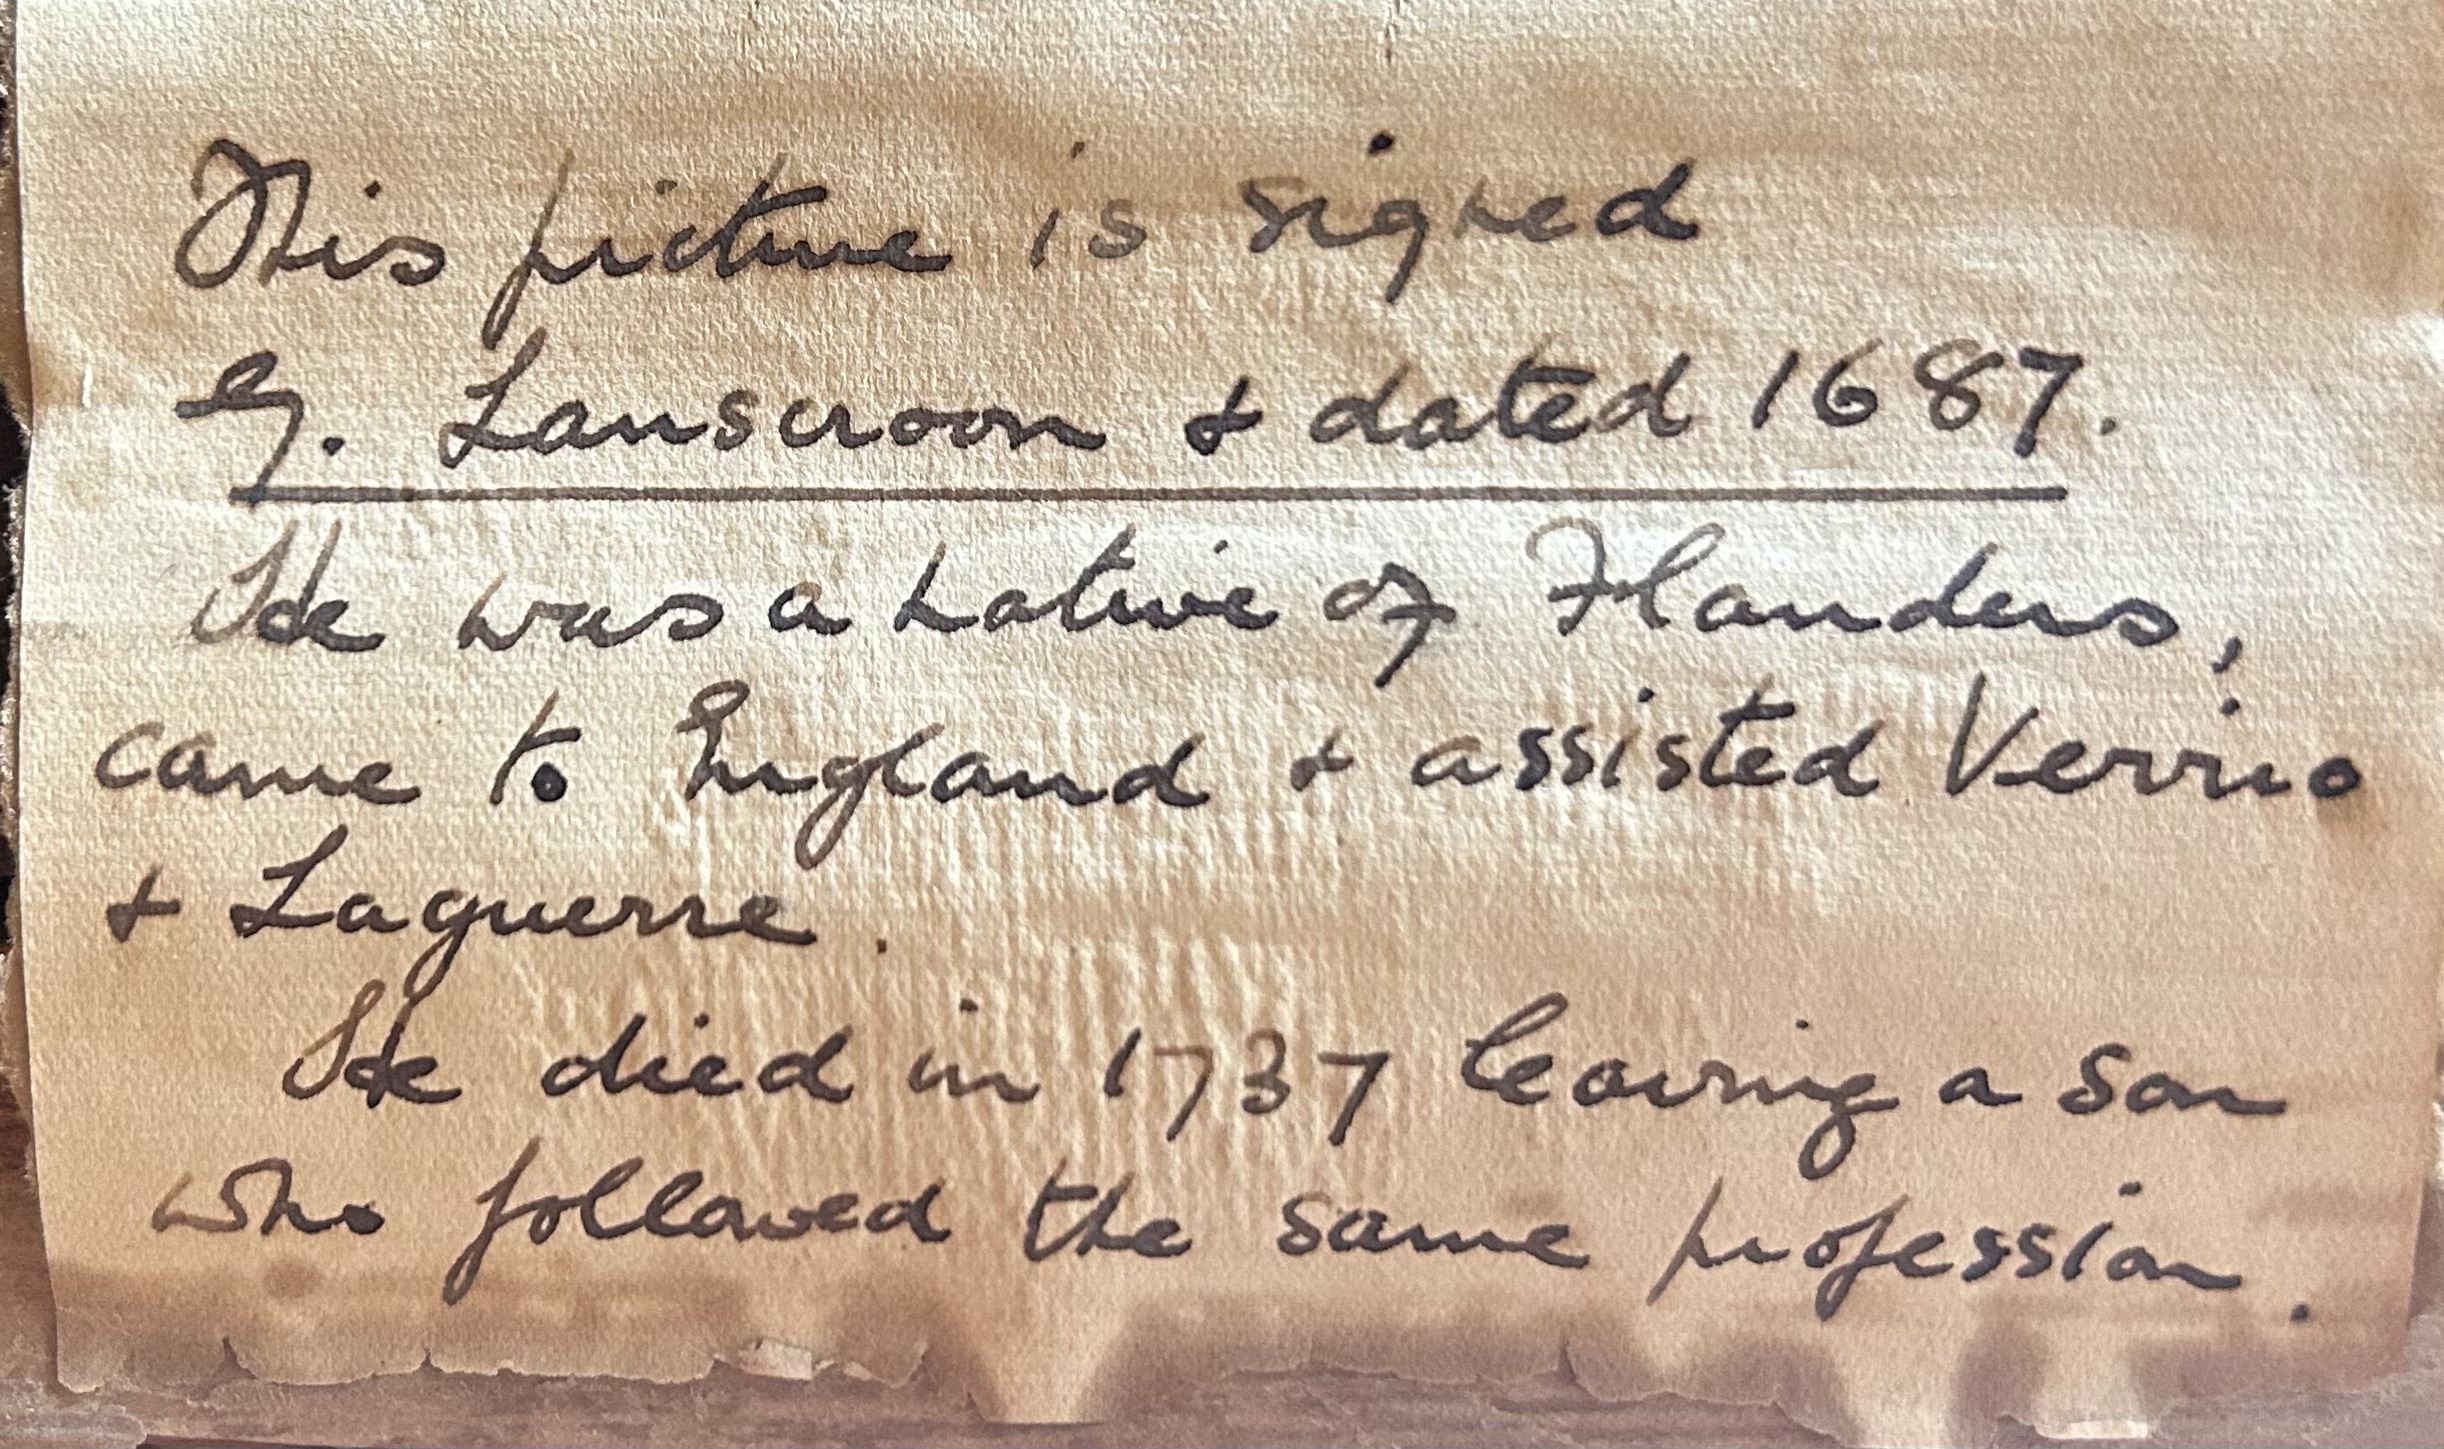 This picture is signed
G. Lanscroon & dated 1687.
He was a native of Flanders,
came to England & assisted Verrio
& Laguerre.
He died in 1737 leaving a son
who followed the same profession.